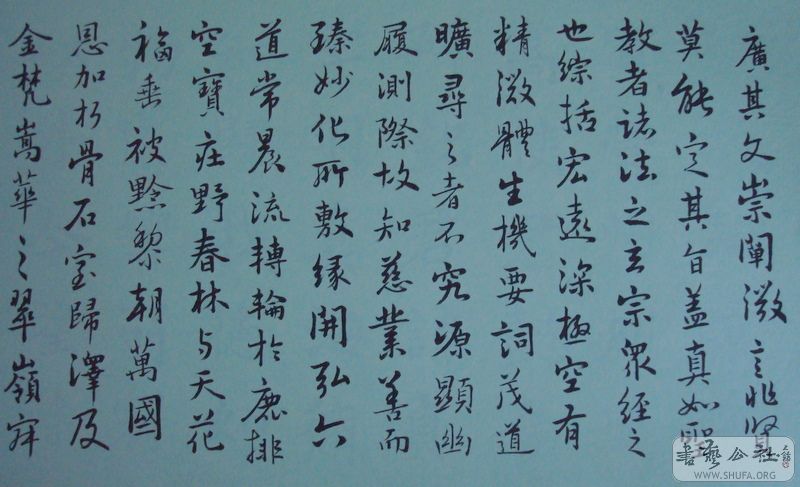 廣其文崇闡微言非賢
莫能定其旨蓋真如聖
教者諸法之玄宗眾經之
也綜括宏遠深極空有
精微體生機要詞茂道
曠尋之者不究源顯幽
履測際故知慈業善而
臻妙化所敷緣開弘六
道常晨流轉輪於鹿排
空寶庄野春林与天花
福垂被黔黎朝萬國
恩加朽骨石室歸澤及
金梵嵩華之翠嶺
書藝公社
WWW.SHUFA.ORG